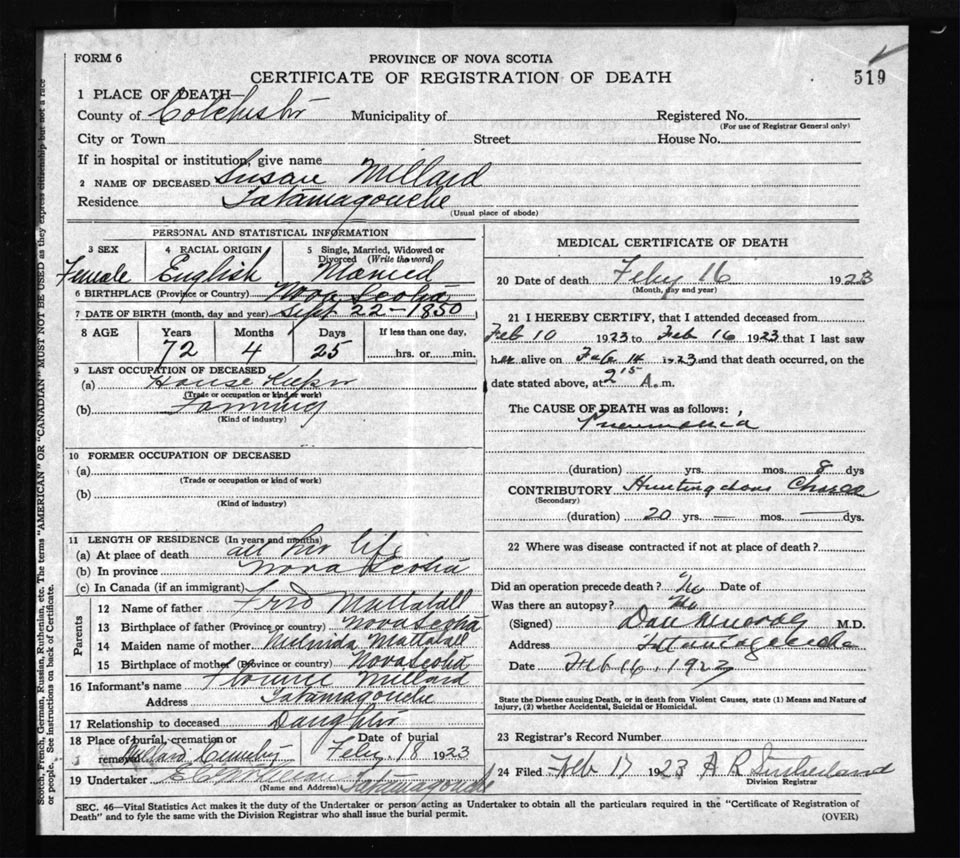 FORM 6
PROVINCE OF NOVA SCOTIA
CERTIFICATE OF REGISTRATION OF DEATH
519
1 PLACE OF DEATH—
County of Colchester Municipality of Registered No.
(For use of Registrar General only)
City or Town Street House No.
If in hospital or institution, give name
2 NAME OF DECEASED Susan Millard
Residence Tatamagouche
(Usual place of abode)
PERSONAL AND STATISTICAL INFORMATION
3 SEX 4 RACIAL ORIGIN 5 Single, Married, Widowed or Divorced (Write the word)
Female English Married
6 BIRTHPLACE (Province or Country) Nova Scotia
7 DATE OF BIRTH (month, day and year) Sept 22-1850
8 AGE Years Months Days If less than one day,
72 4 25 hrs. or min.
9 LAST OCCUPATION OF DECEASED
(a) House Keeper
(Trade or occupation or kind of work)
(b) Farming
(Kind of industry)
10 FORMER OCCUPATION OF DECEASED
(a)
(Trade or occupation or kind of work)
(b)
(Kind of industry)
11 LENGTH OF RESIDENCE (In years and months)
(a) At place of death all her life
(b) In province Nova Scotia
(c) In Canada (if an immigrant)
Parents
12 Name of father Fred Mattatall
13 Birthplace of father (Province or country) Nova Scotia
14 Maiden name of mother Mattatall
15 Birthplace of mother (Province or country) Nova Scotia
16 Informant's name Millard
Address Tatamagouche
17 Relationship to deceased Daughter
18 Place of burial, cremation or removal Date of burial
Millard Cemetery Feby 18 1923
19 Undertaker Tatamagouche
(Name and Address)
MEDICAL CERTIFICATE OF DEATH
20 Date of death Feby 16 1923
(Month, day and year)
21 I HEREBY CERTIFY, that I attended deceased from
Feb 10 1923 to Feb 16 1923 that I last saw
her alive on Feb 14 1923 and that death occurred, on the
date stated above, at 2 15 A. m.
The CAUSE OF DEATH was as follows:
Pneumonia
(duration) yrs. mos. 8 dys
CONTRIBUTORY Huntingdons Chorea
(Secondary)
(duration) 20 yrs. — mos. — dys.
22 Where was disease contracted if not at place of death?
Did an operation precede death? No Date of
Was there an autopsy? No
(Signed) Dan Murray M.D.
Address Tatamagouche
Date Feb 16. 1923
State the Disease causing Death, or in death from Violent Causes, state (1) Means and Nature of
Injury, (2) whether Accidental, Suicidal or Homicidal.
23 Registrar's Record Number
24 Filed Feb 17 1923 A R Sutherland
Division Registrar
SEC. 46—Vital Statistics Act makes it the duty of the Undertaker or person acting as Undertaker to obtain all the particulars required in the "Certificate of Registration of
Death" and to fyle the same with the Division Registrar who shall issue the burial permit.
(OVER)
Scotch, French, German, Russian, Ruthenian, etc. The terms "AMERICAN" or "CANADIAN" MUST NOT BE USED as they express citizenship but not a race
or people. See instructions on back of Certificate.